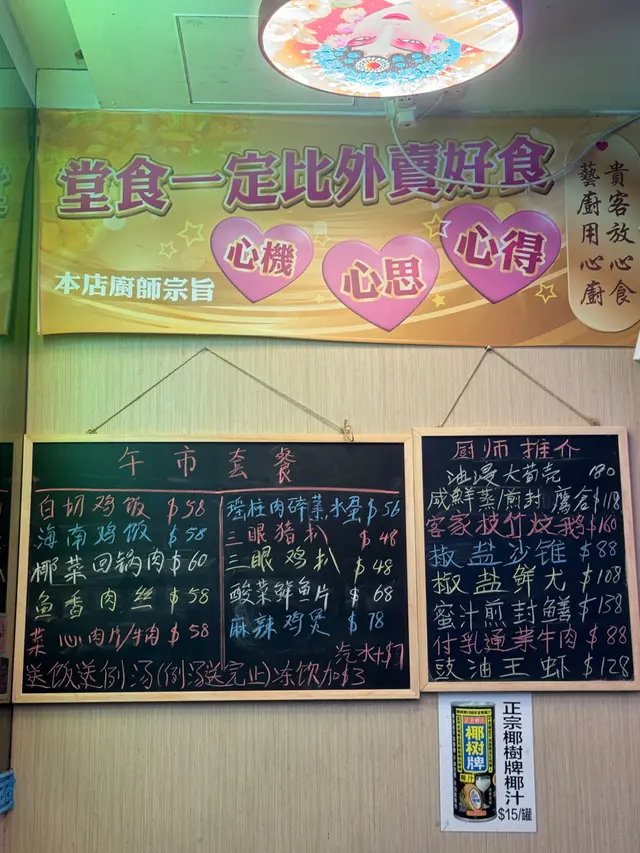 堂食一定比外賣好食
心機
心思
心得
本店廚師宗旨
貴客放心食
藝廚用心廚
午市套餐
白切鸡饭 $58
海南鸡饭 $58
椰菜回锅肉 $60
鱼香肉丝 $58
菜心肉片/牛肉 $58
瑶柱肉碎蒸水蛋 $56
三眼猪扒 $48
三眼鸡扒 $48
酸菜鲜鱼片 $68
麻辣鸡煲 $78
汽水+$7
送饭送例汤(例汤送完止)冻饮加$3
厨师推介
油浸大荀壳 180
咸鲜蒸/煎封 $118
客家枝竹炆鹅 $160
椒盐沙锥 $88
椒盐鲜尤 $108
蜜汁煎封鳝 $138
付乳通菜牛肉 $88
豉油王虾 $128
正宗椰树
椰树牌
椰汁
正宗椰樹牌椰汁
$15/罐